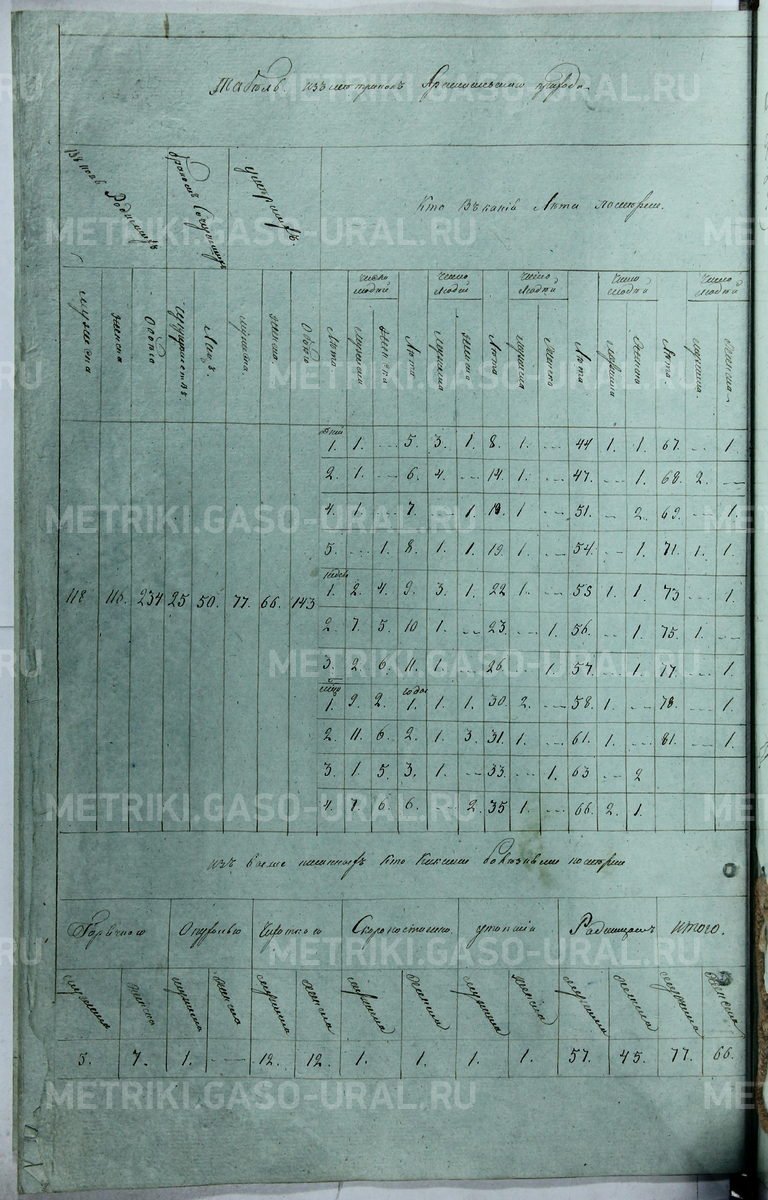 METRIKI.GASO-URAL.RU
Табель изъ метрикъ прихода.
Родившихъ
браковъ
умершихъ
Кто въ какія Лѣта померли.
число людей число людей число людей число людей число людей
мужеска женска Обоего Лицъ мужеска женска Обоего Лѣта мужеска женска Лѣта мужеска женска Лѣта мужеска женска Лѣта мужеска женска Лѣта мужеска женска
дней
1. 1. — 5. 3. 1. 8. 1. — 44 1. 1. 67. — 1.
2. 1. — 6. 4. — 14. 1. — 47. — 1. 68. 2. —
4. 1. — 7. — 1. 1. — 51. — 2. 69. — 1.
5. — 1. 8. 1. 1. 19. 1. — 54. — 1. 71. 1. 1.
недѣл
118 234 25 50. 77. 66. 143 1. 2. 4. 9. 3. 1. 22 1. — 55 1. 1. 73. — 1.
2. 7. 5. 10 1. — 23. — 1. 56. — 1. 75. 1. —
3. 2. 6. 11. 1. — 26. — 1. 57. — 1. 77. — 1.
годы
1. 9. 2. 1. 1. 1. 30. 2. — 58. 1. — 78. — 1.
2. 11. 6. 2. 1. 3. 31. 1. — 61. 1. — 81. — 1.
3. 1. 5. 3. 1. — 33. — 1. 63 — 2
4. 7. 6. 6. — 2. 35 1. — 66. 2. 1.
изъ Кто Какими болѣзньми померли
Горячкою Чахоткою Скоропостижно утопшія Родимцомъ итого.
мужеска женска мужеска женска мужеска женска мужеска женска мужеска женска мужеска женска мужеска женска
5. 7. 1. — 12. 12. 1. 1. 1. 1. 57. 45. 77. 66.